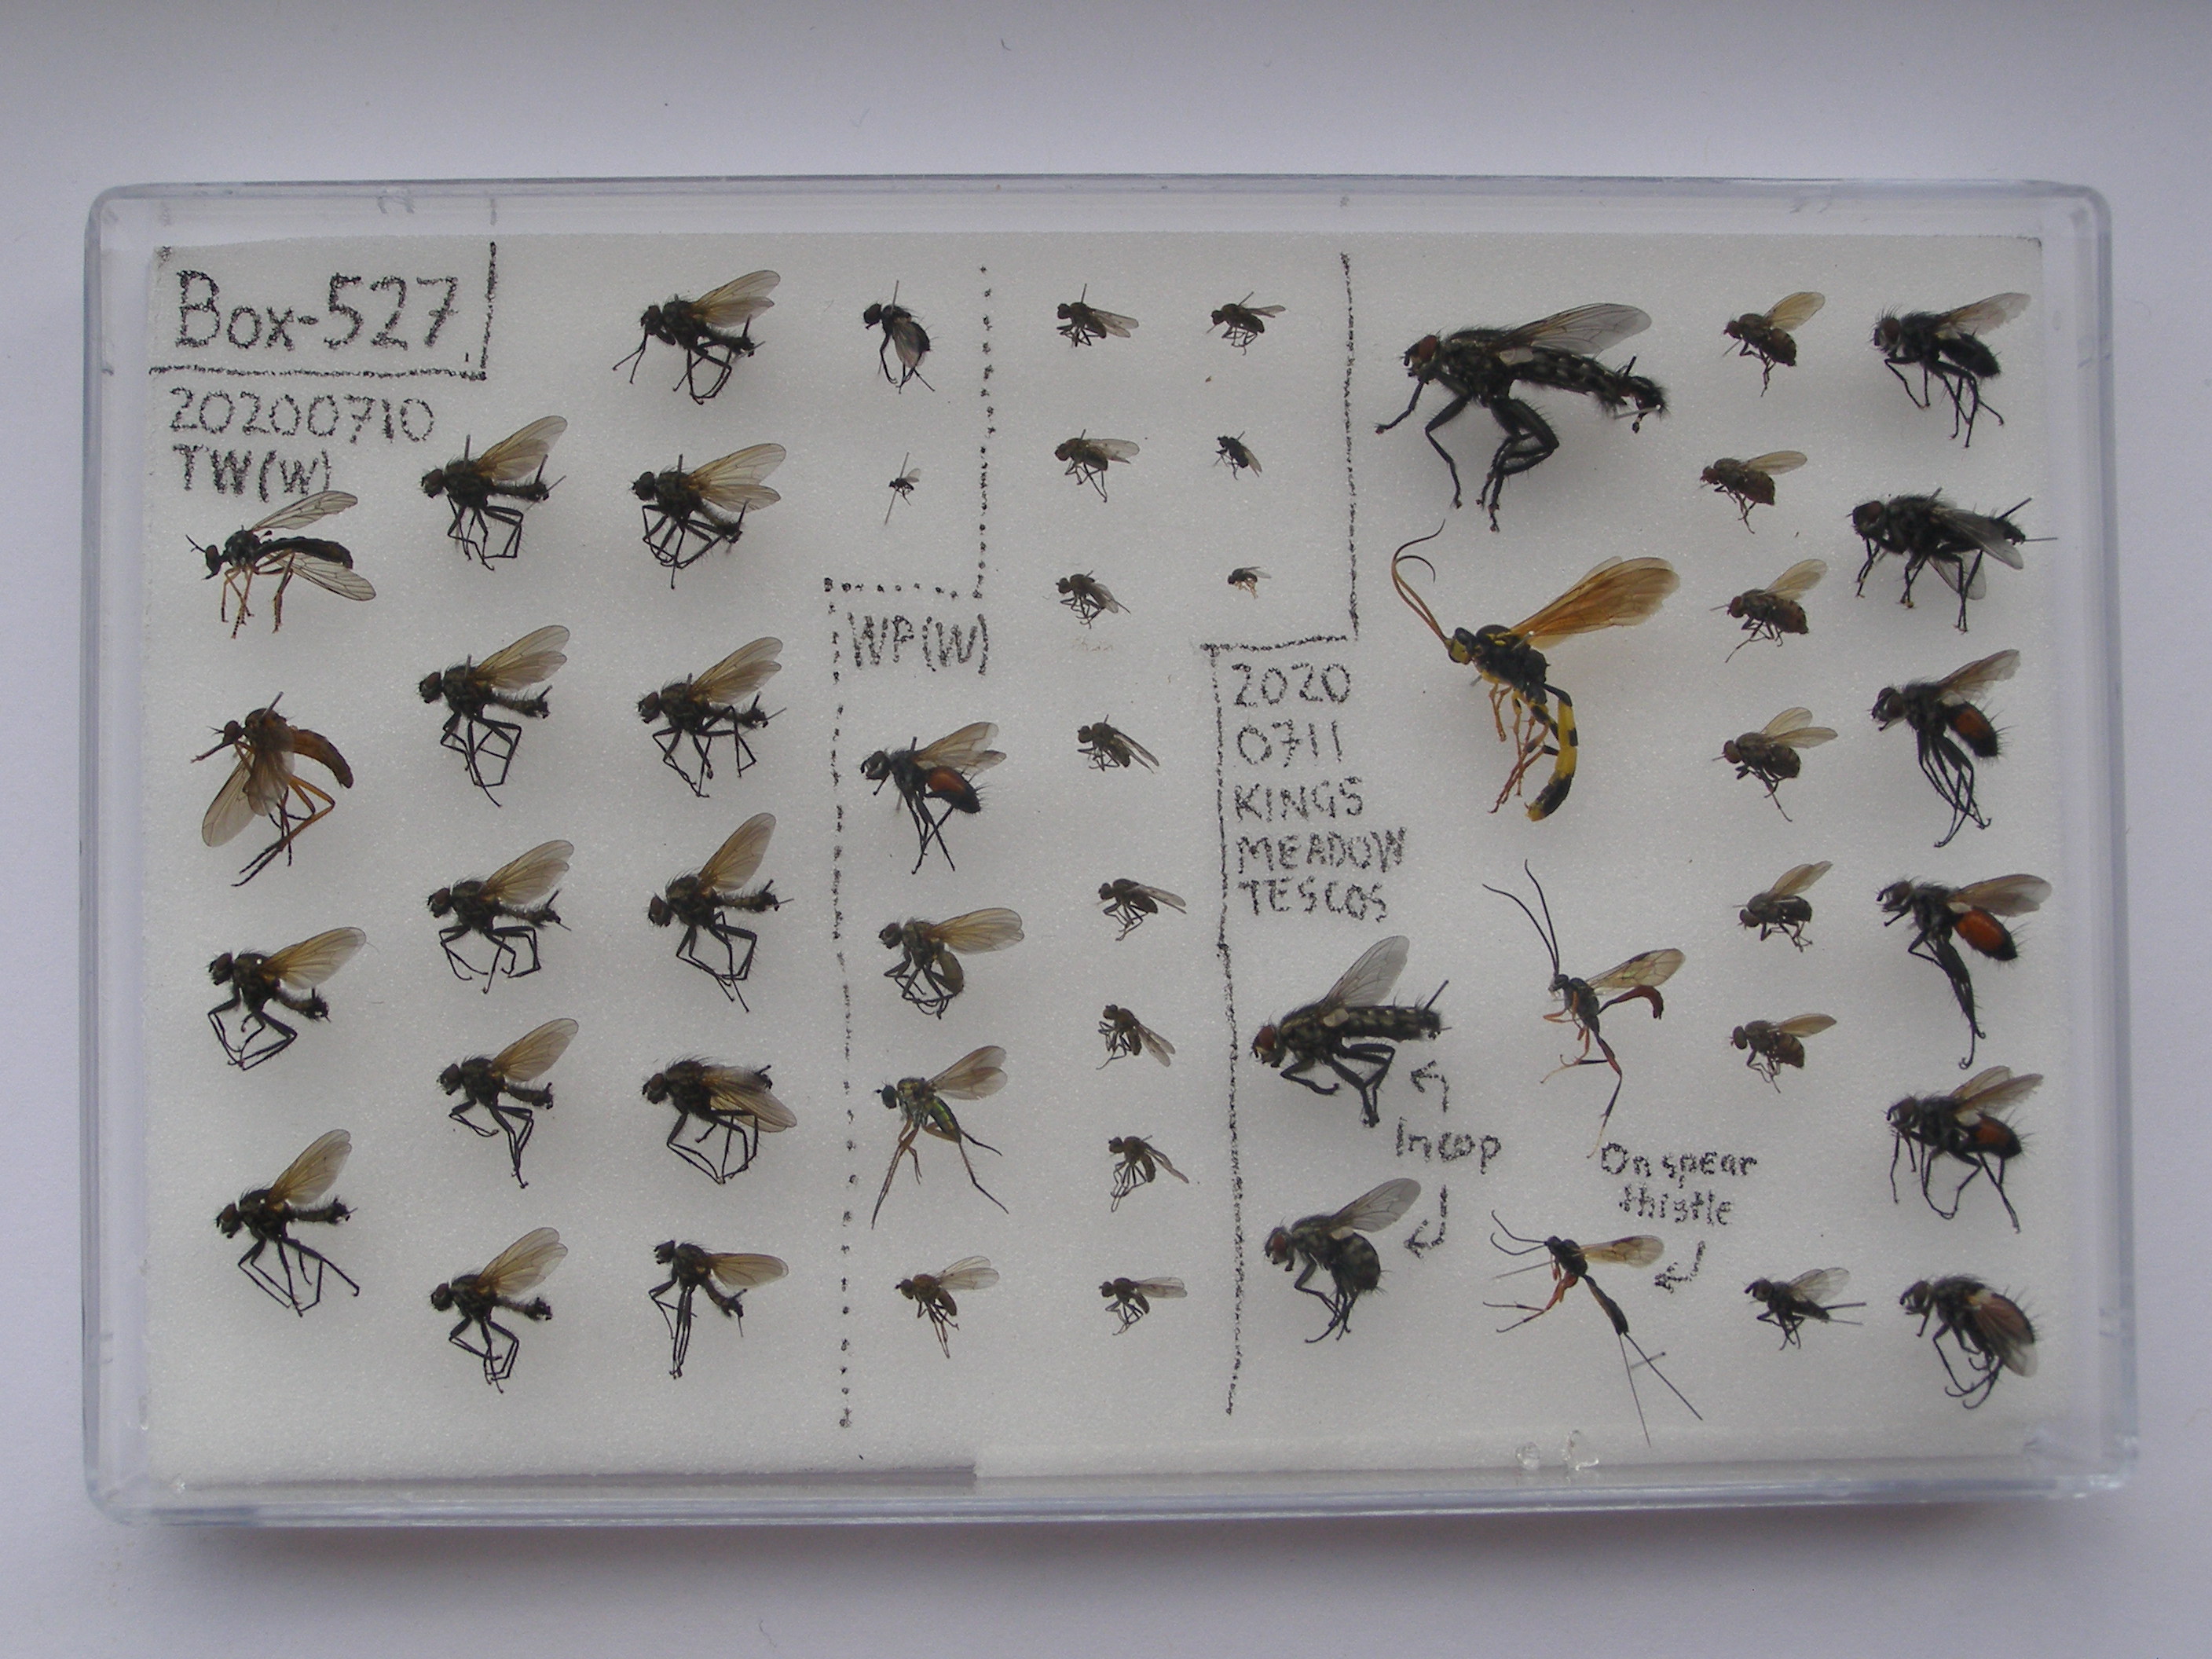 Box-527
20200710
TW(W)
WP(W)
2020
0711
KINGS
MEADOW
TESCOS
In cop
On spear
thistle